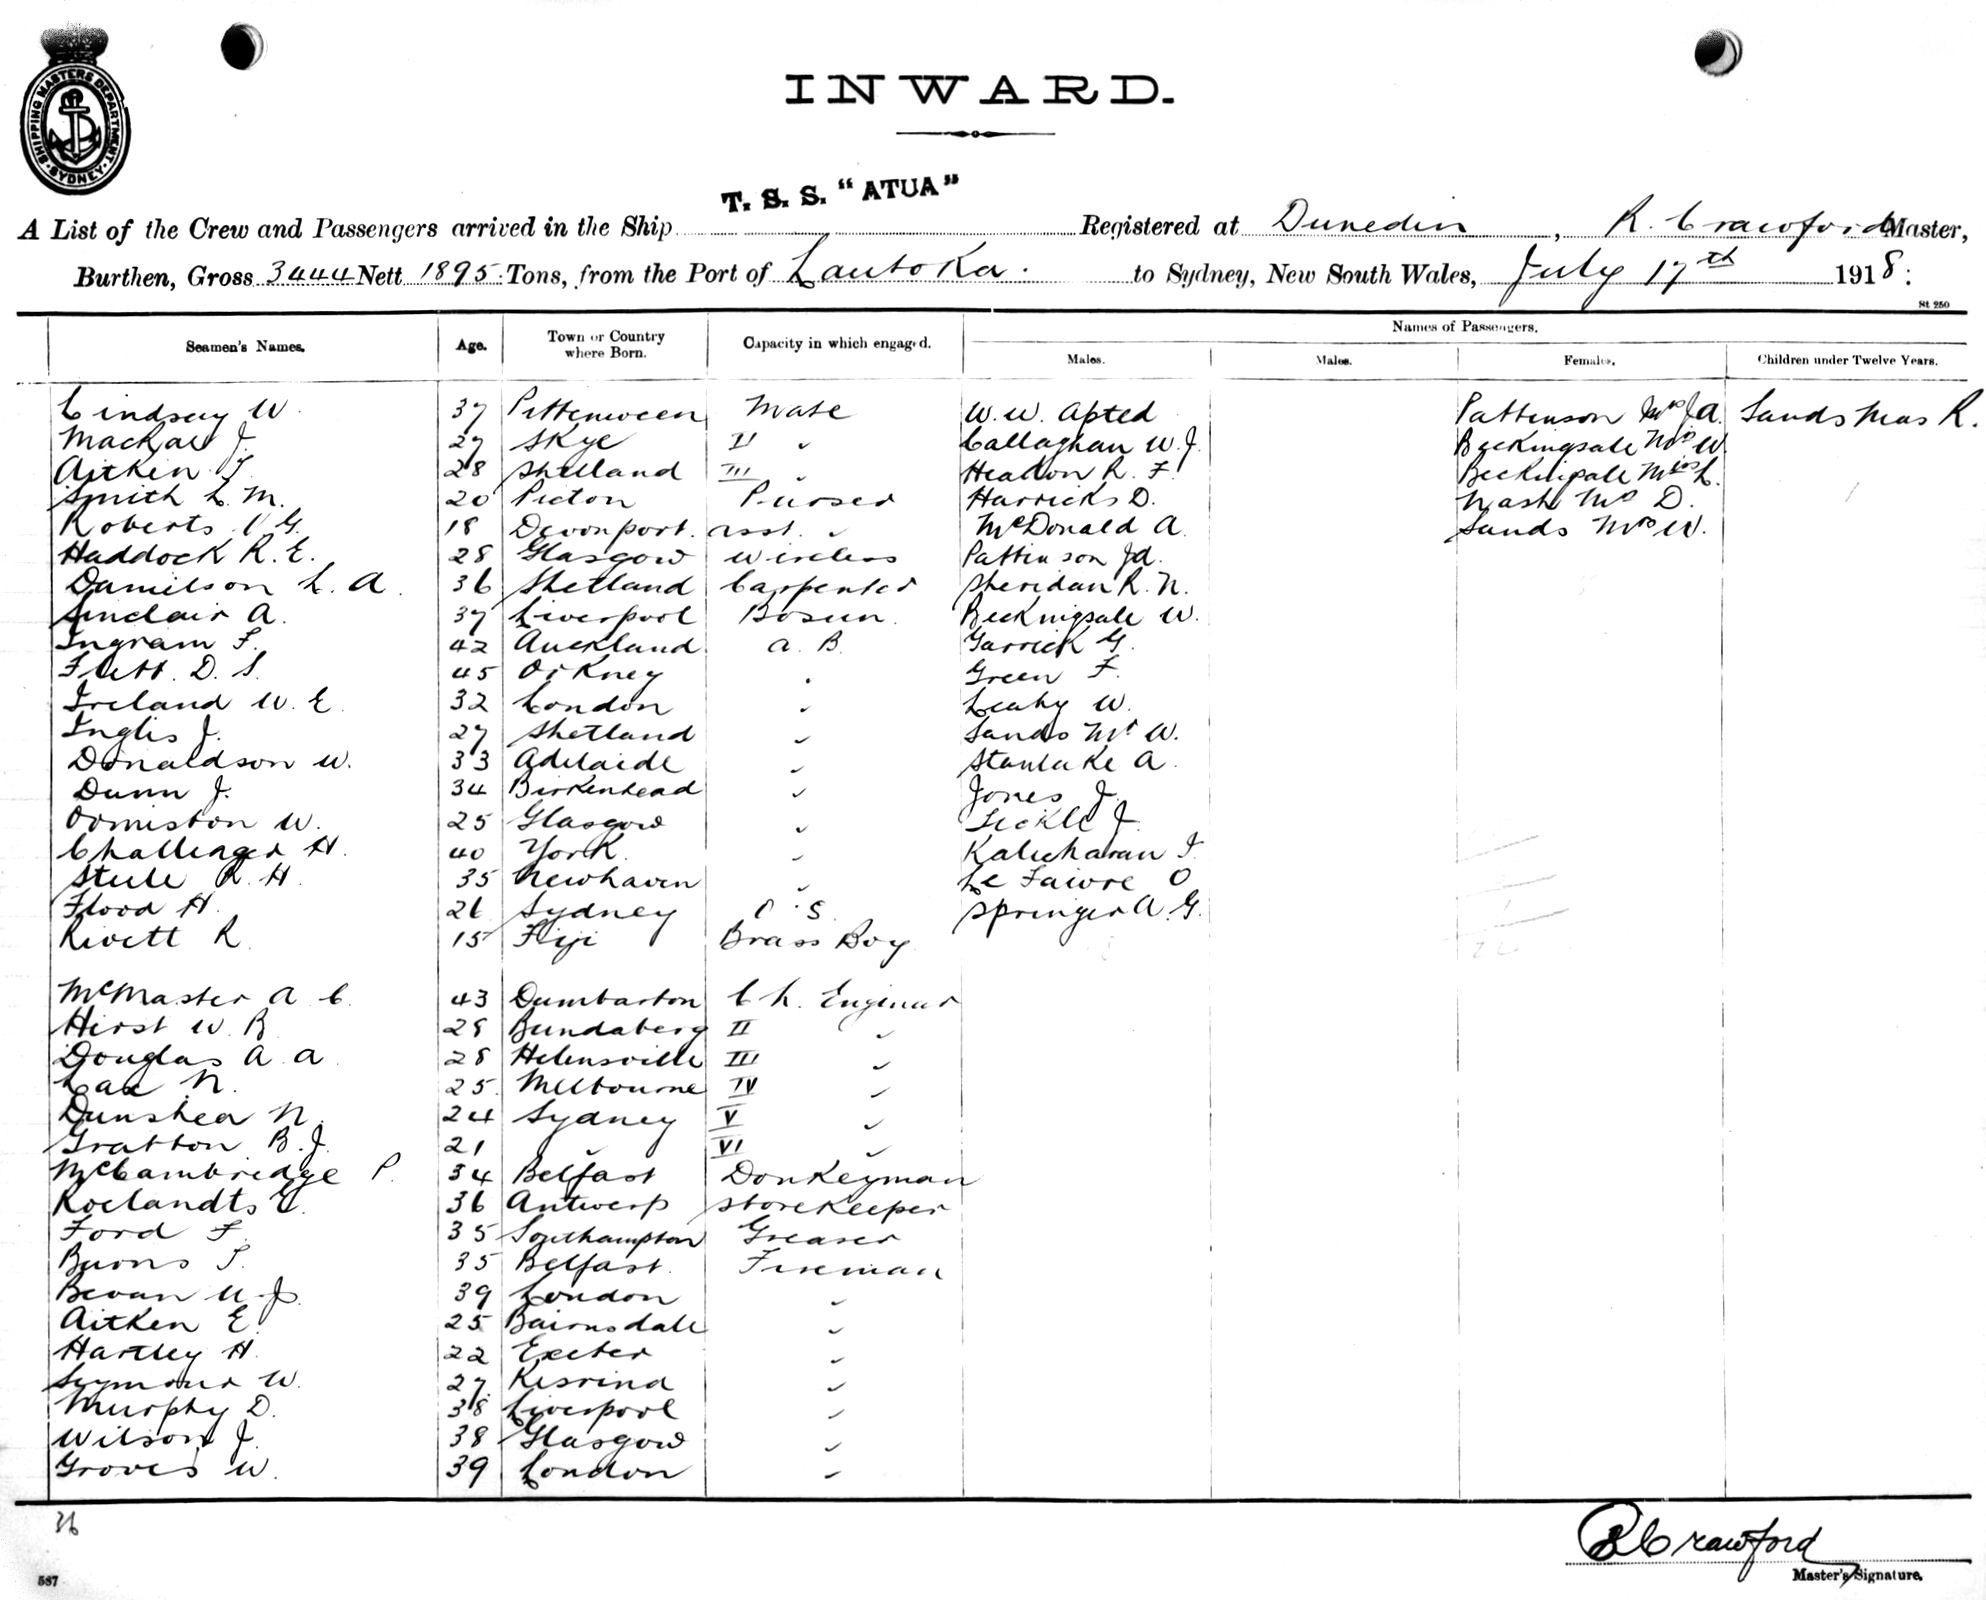 SHIPPING MASTERS DEPARTMENT · SYDNEY ·
INWARD.
T. S. S. "ATUA"
A List of the Crew and Passengers arrived in the Ship Registered at Dunedin, R. Crawford Master,
Burthen, Gross 3444 Nett 1895 Tons, from the Port of Lautoka. to Sydney, New South Wales, July 17th 1918:
St 250
Names of Passengers.
Seamen's Names. Age. Town or Country where Born. Capacity in which engaged. Males. Males. Females. Children under Twelve Years.
Lindsay W. 37 Pittenween Mate W. W. Apted Pattinson Mrs J A. Sands Mas R.
MacKae J. 27 Skye II " Callaghan W. J. Beckingsale Mrs W
Aitken T. 28 Shetland III " Headon R. F. Beckingsale Miss L.
Smith L. M. 20 Picton Purser Harricks D. Nash Ms D.
Roberts V G. 18 Devonport. asst. " McDonald A. Sands Mrs W.
Haddock R. E. 28 Glasgow Wireless Pattinson J A.
Danielson L. A. 36 Shetland Carpenter Sheridan R. N.
Sinclair A. 37 Liverpool Bosun. Beckingsale W.
Ingram F. 42 Auckland a. B. Garrick G.
Flett. D. S. 45 Orkney " Green F.
Ireland W. E. 32 London " Leahy W.
Inglis J. 27 Shetland " Sands Mr W.
Donaldson W. 33 Adelaide " Stanlake A.
Dunn J. 34 Birkenhead " Jones J.
Ormiston W. 25 Glasgow " Tickle J.
Challenger H. 40 York. " Kalicharan I.
Steele R. H. 35 Newhaven " Le Faivre O
Flood H. 26 Sydney O. S. Springer A. G.
Rivett R. 15 Fiji Brass Boy
McMaster A. C. 43 Dumbarton Ch. Engineer
Hirst W. B. 28 Bundaberg II "
Douglas A. A. 28 Helensville III "
Lax N. 25. Melbourne IV "
Dunshea N. 24 Sydney V "
Gratton B. J. 21 " VI "
McCambridge P. 34 Belfast Donkeyman
Roelandts E. 36 Antwerp Storekeeper
Ford F. 35 Southampton Greaser
Burns T. 35 Belfast. Fireman
Bevan W. J. 39 London "
Aitken E. 25 Bairnsdale "
Hartley H. 22 Exeter "
Seymour W. 27. "
Murphy D. 38 Liverpool "
Wilson J. 38 Glasgow "
Groves W. 39 London "
36
R Crawford
Master's Signature.
587